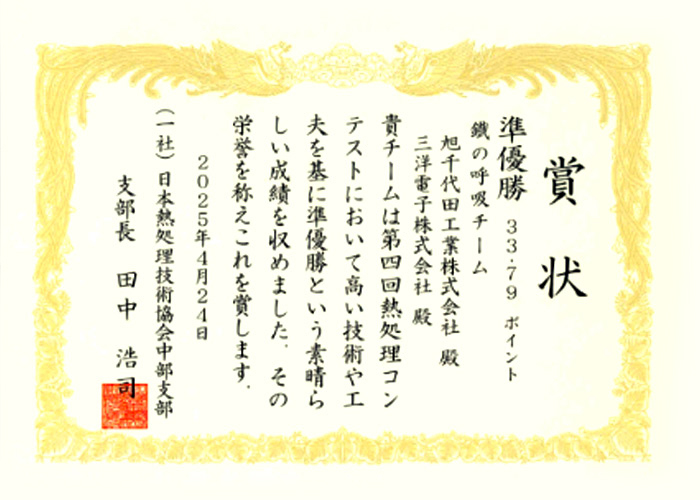 賞状
準優勝 33.79 ポイント
鐵の呼吸チーム
旭千代田工業株式会社 殿
三洋電子株式会社 殿
貴チームは第四回熱処理コン
テストにおいて高い技術や工
夫を基に準優勝という素晴ら
しい成績を収めました．その
栄誉を称えこれを賞します．
2025年4月24日
(一社)日本熱処理技術協会中部支部
支部長 田中 浩司